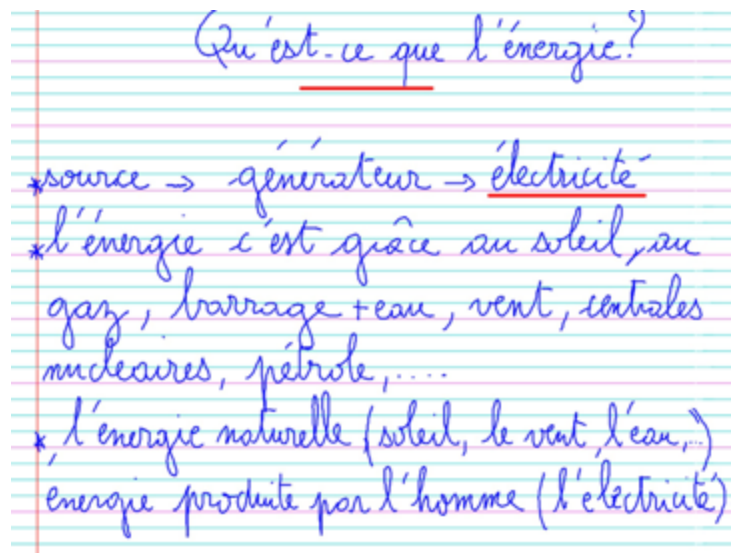 Qu'est-ce que l'énergie?
*source → générateur → électricité
*l'énergie c'est grâce au soleil, au
gaz, barrage + eau, vent, centrales
nucléaires, pétrole,....
* l'énergie naturelle (soleil, le vent, l'eau,..)
énergie produite par l'homme (l'électricité)